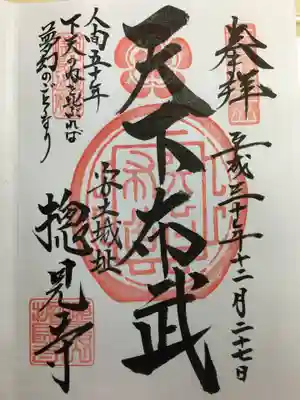 奉拝
平成三十年十二月二十七日
天下布武
安土城址
摠見寺
人間五十年
下天の内を比ぶれば
夢幻のごとくなり